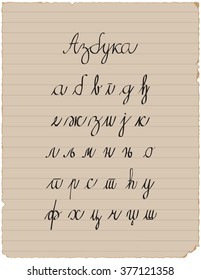 Азбука
а б в г д ђ
е ж з и ј к
л љ м н њ о
п р с т ћ у
ф х ц ч џ ш
shutterstock.com · 377121358